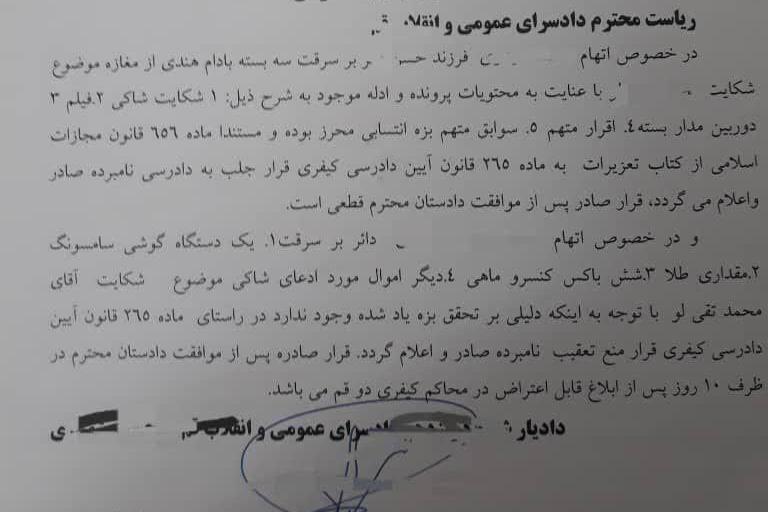 ریاست محترم دادسرای عمومی و انقلاب
در خصوص اتهام فرزند بر سرقت سه بسته بادام هندی از مغازه موضوع
شکایت با عنایت به محتویات پرونده و ادله موجود به شرح ذیل: ۱ شکایت شاکی ۲.فیلم ۳
دوربین مدار بسته٤. اقرار متهم ۵. سوابق متهم بزه انتسابی محرز بوده و مستندا ماده ٦٥٦ قانون مجازات
اسلامی از کتاب تعزیرات به ماده ٢٦٥ قانون آیین دادرسی کیفری قرار جلب به دادرسی نامبرده صادر
واعلام می گردد، قرار صادر پس از موافقت دادستان محترم قطعی است.
و در خصوص اتهام دائر بر سرقت۱. یک دستگاه گوشی سامسونگ
۲.مقداری طلا ۳.شش باکس کنسرو ماهی ٤.دیگر اموال مورد ادعای شاکی موضوع شکایت آقای
محمد تقی لو با توجه به اینکه دلیلی بر تحقق بزه یاد شده وجود ندارد در راستای ماده ٢٦٥ قانون آیین
دادرسی کیفری قرار منع تعقیب نامبرده صادر و اعلام گردد. قرار صادره پس از موافقت دادستان محترم در
ظرف ۱۰ روز پس از ابلاغ قابل اعتراض در محاکم کیفری دو قم می باشد.
دادیار دادسرای عمومی و انقلاب